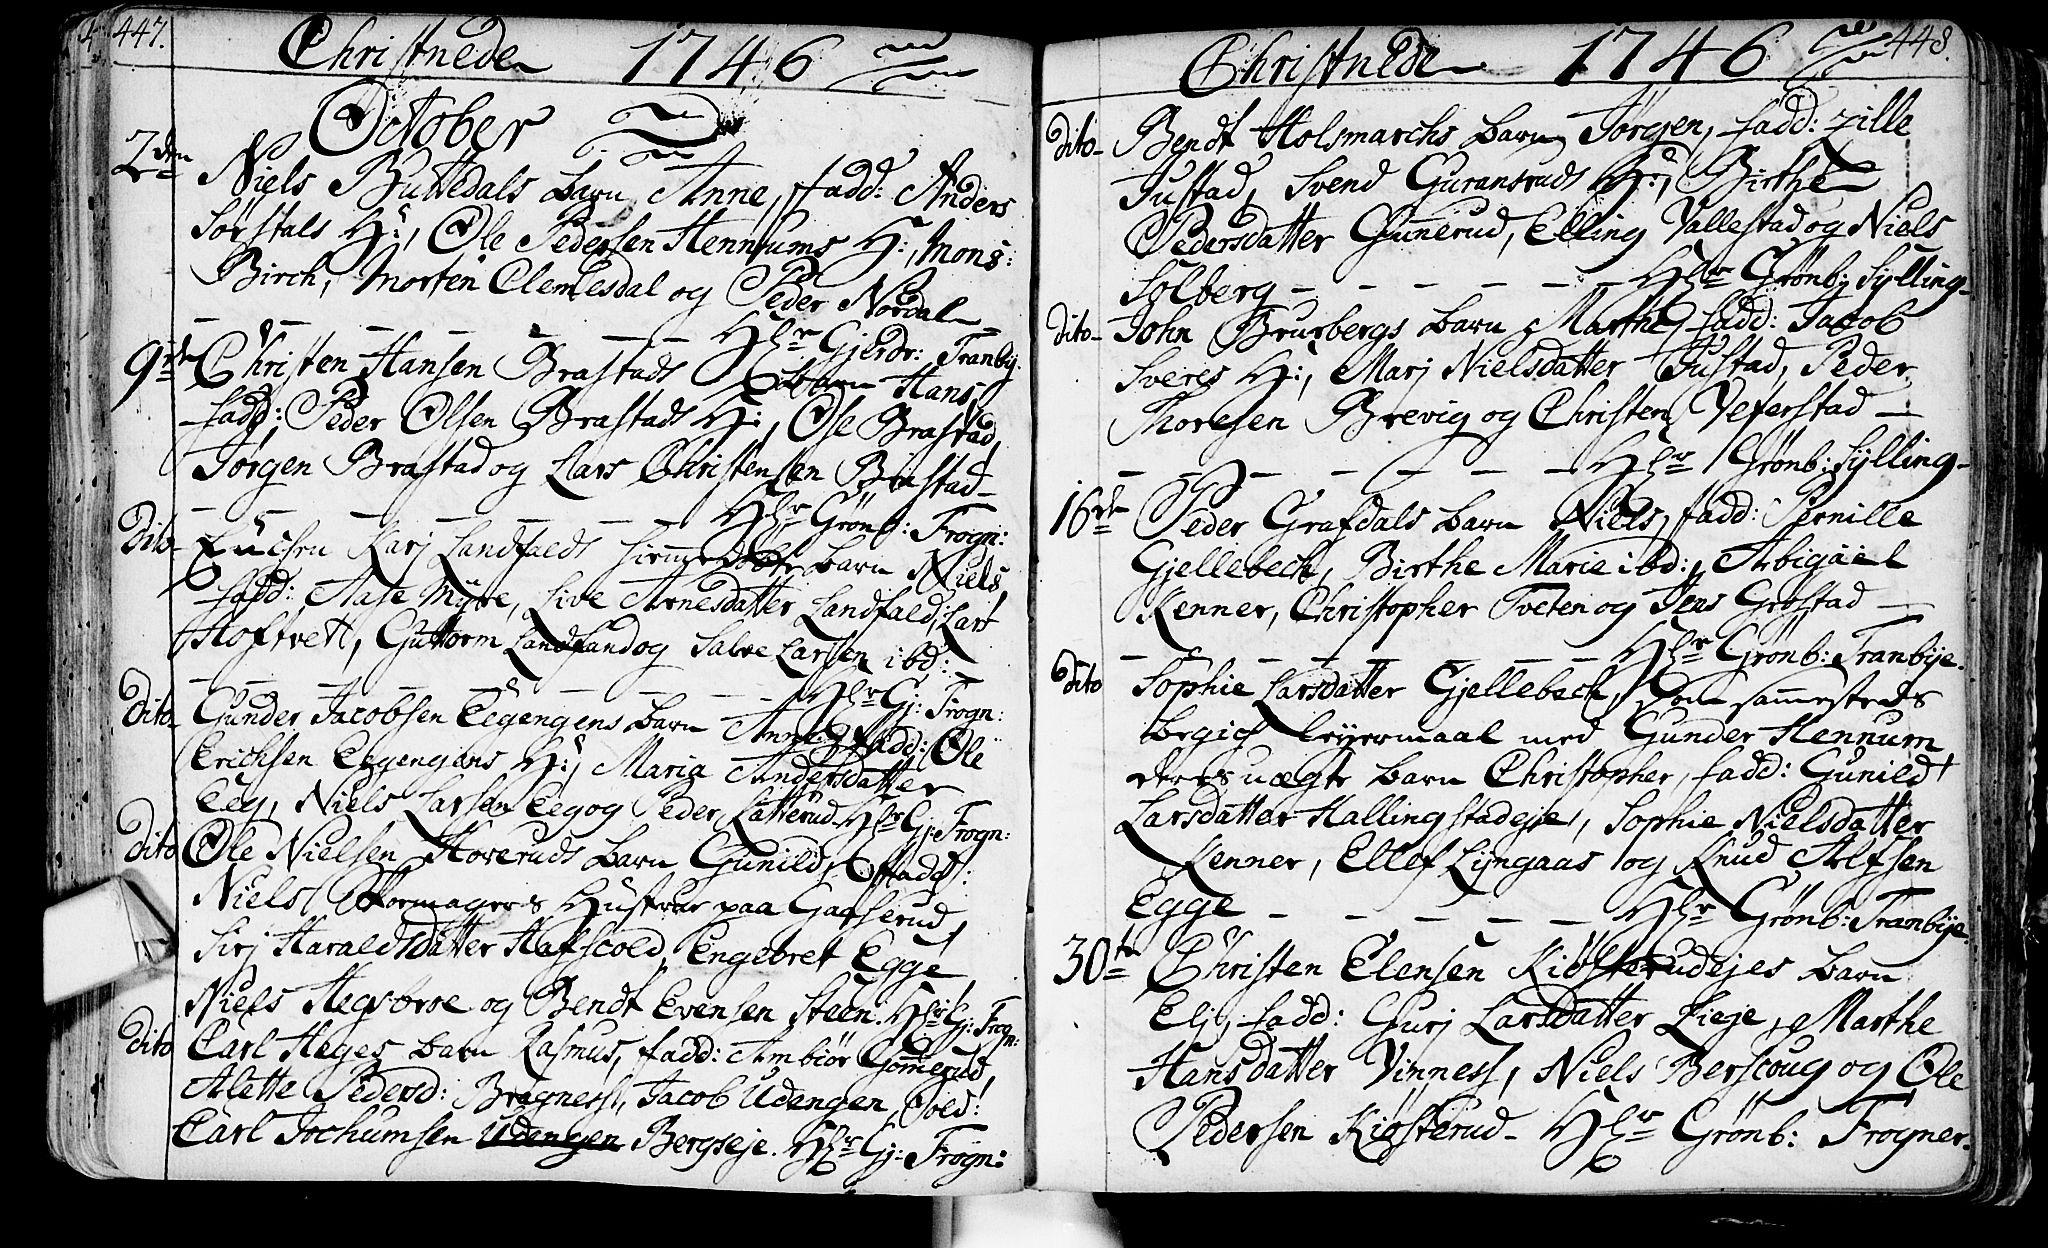 447.
Christneden 1746
October
2den Niels Buttedals barn Anne, fadd: Anders
Sørstals H:, Ole Pedersen Hennums H:, Mons:
Birch, Morten Clemesdal og Peder Nordal
Hr Gjerdr: Tranby:
9de Christen Hansen Brastads barn Hans,
fadd: Peder Olsen Brastads H:, Ole Brastad,
Jørgen Brastad og Lars Christensen Brastad
Hr Grönb: Frogn:
Dito Karj Landfalds barn Niels,
fadd: Aase Myre, Live Arnesdatter Landfald, Lars
Hoftvett, Guttorm Landfand og Salve Larsen ibd:
Hr Gj: Frogn:
Dito Gunder Jacobsen Eegengens barn Anne, fadd: Ole
Erichsen Eegengens H:, Maria Andersdatter
Eeg, Niels Larsen Eeg og Peder Latterud Hr Gj: Frogn:
Dito Ole Nielsen Hoveruds barn Gunild, fadd:
Niels Skomagers Hustrue paa Gaaserud,
Sirj Haraldsdatter Hafscold, Engebret Egge
Niels Hegsbroe og Bendt Evensen Steen. Hr Gj: Frogn:
Dito Carl Heges barn Rasmus, fadd: Ambiör Gommerud,
Alette Pedersd: Bragness, Jacob Udengen, Sold:
Carl Jochumsen Udengen Bergseje. Hr Gj: Frogn:
448.
Christneden 1746
Dito Bendt Holsmarchs barn Jørgen, fadd: Zille
Justad, Svend Guransruds H:, Birthe
Pedersdatter Gunerud, Elling Vallestad og Niels
Solberg Hr Grönb: Sylling
Dito John Brurbergs barn Marthe, fadd: Jacob
Sveres H:, Marj Nielsdatter Justad, Peder
Thoresen Brevig og Christen Veferstad
Hr Grönb: Sylling
16de Peder Grafdals barn Niels, fadd: Pernille
Gjellebech, Birthe Marie ibd:, Abigäel
Kenner, Christopher Tveten og Jens Grøstad
Hr Grönb: Tranbye.
Dito Sophie Larsdatter Gjellebech, som sammesteds
begich leyermaal med Gunder Hennum
deres uægte barn Christopher, fadd: Gunild
Larsdatter Hallingstadeje, Sophie Nielsdatter
Kenner, Ellef Lyngaas og Knud Alfsen
Egge Hr Grönb: Tranbye.
30te Christen Elensen Kiøsterudejes barn
Elj, fadd: Gurj Larsdatter Lieje, Marthe
Hansdatter Vinness, Niels Berscoug og Ole
Pedersen Kiøsterud Hr Grönb: Frogner.